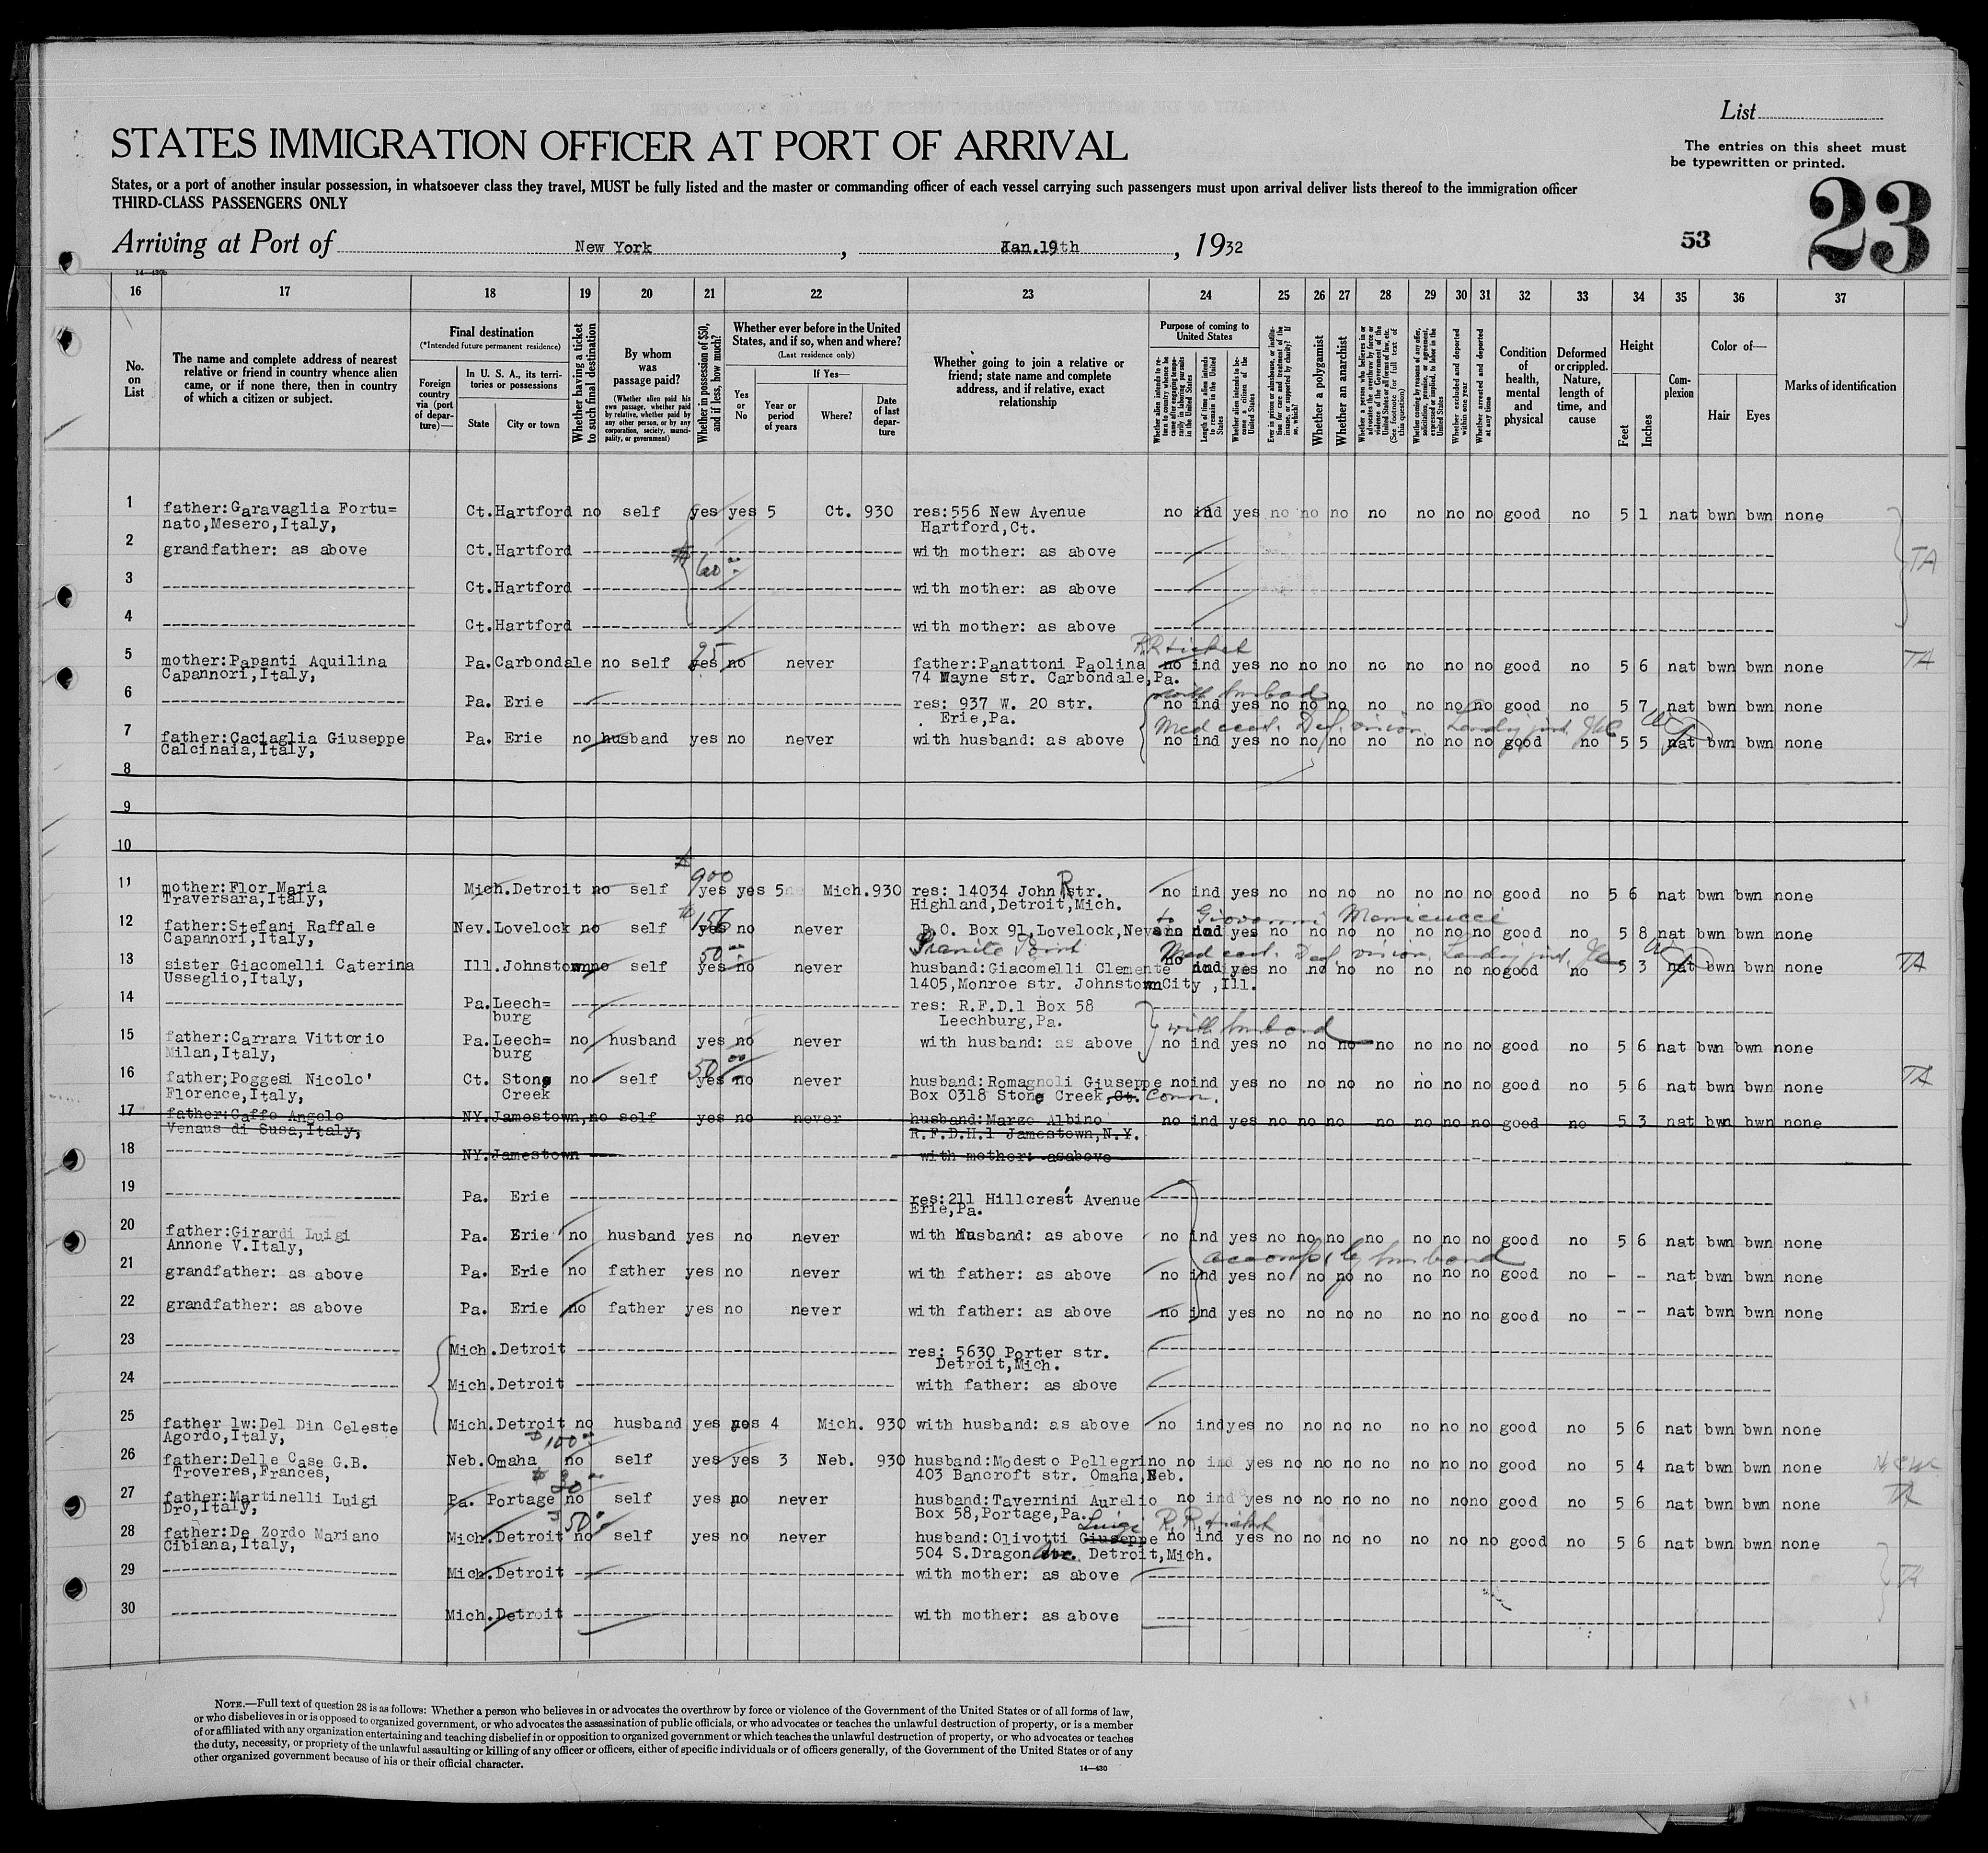 List
STATES IMMIGRATION OFFICER AT PORT OF ARRIVAL
The entries on this sheet must
be typewritten or printed.
States, or a port of another insular possession, in whatsoever class they travel, MUST be fully listed and the master or commanding officer of each vessel carrying such passengers must upon arrival deliver lists thereof to the immigration officer
THIRD-CLASS PASSENGERS ONLY
23
Arriving at Port of New York, Jan.19th, 1932
53
14—430b
16 17 18 19 20 21 22 23 24 25 26 27 28 29 30 31 32 33 34 35 36 37
No. on List
The name and complete address of nearest relative or friend in country whence alien came, or if none there, then in country of which a citizen or subject.
Final destination
(*Intended future permanent residence)
Foreign country via (port of departure)—
In U. S. A., its territories or possessions
State
City or town
Whether having a ticket to such final destination
By whom was passage paid?
(Whether alien paid his own passage, whether paid by relative, whether paid by any other person, or by any corporation, society, municipality, or government)
Whether in possession of $50, and if less, how much?
Whether ever before in the United States, and if so, when and where?
(Last residence only)
Yes or No
If Yes—
Year or period of years
Where?
Date of last departure
Whether going to join a relative or friend; state name and complete address, and if relative, exact relationship
Purpose of coming to United States
Whether alien intends to return to country whence he came after engaging temporarily in laboring pursuits in the United States
Length of time alien intends to remain in the United States
Whether alien intends to become a citizen of the United States
Ever in prison or almshouse, or institution for care and treatment of the insane, or supported by charity? If so, which?
Whether a polygamist
Whether an anarchist
Whether a person who believes in or advocates the overthrow by force or violence of the Government of the United States or all forms of law, etc. (See footnote for full text of this question)
Whether coming by reasons of any offer, solicitation, promise, or agreement, expressed or implied, to labor in the United States
Whether excluded and deported within one year
Whether arrested and deported at any time
Condition of health, mental and physical
Deformed or crippled. Nature, length of time, and cause
Height
Feet
Inches
Complexion
Color of—
Hair
Eyes
Marks of identification
1 father:Garavaglia Fortu= Ct. Hartford no self yes yes 5 Ct. 930 res:556 New Avenue no ind yes no no no no no no no good no 5 1 nat bwn bwn none
nato,Mesero,Italy, Hartford,Ct.
2 grandfather: as above Ct. Hartford with mother: as above
$ 60 TA
3 Ct. Hartford with mother: as above
4 Ct. Hartford with mother: as above
R.R ticket
5 mother:Papanti Aquilina Pa. Carbondale no self yes 25 no never father:Panattoni Paolina no ind yes no no no no no no no good no 5 6 nat bwn bwn none TA
Capannori,Italy, 74 Wayne str. Carbondale,Pa.
with husband
6 Pa. Erie res: 937 W. 20 str. no ind yes no no no no no no no good no 5 7 nat bwn bwn none
Erie,Pa.
Med cert. Def. vision.
7 father:Caciaglia Giuseppe Pa. Erie no husband yes no never with husband: as above no ind yes no no no no no no no good no 5 5 nat bwn bwn none
Calcinaia,Italy,
8
9
10
$ 900
11 mother:Flor Maria Mich. Detroit no self yes yes 5 Mich. 930 res: 14034 John R str. no ind yes no no no no no no no good no 5 6 nat bwn bwn none
Traversara,Italy, Highland,Detroit,Mich.
$ 156 to Giovanni Menicucci
12 father:Stefani Raffale Nev. Lovelock no self yes no never P.O. Box 91,Lovelock,Nevada no ind yes no no no no no no no good no 5 8 nat bwn bwn none
Capannori,Italy, Granite Point
50 Med cert. Def. vision.
13 sister Giacomelli Caterina Ill. Johnstown no self yes no never husband:Giacomelli Clemente no ind yes no no no no no no no good no 5 3 nat bwn bwn none TA
Usseglio,Italy, 1405,Monroe str. Johnston City ,Ill.
14 Pa. Leech= res: R.F.D.1 Box 58
burg Leechburg,Pa.
with husband
15 father:Carrara Vittorio Pa. Leech= no husband yes no never with husband: as above no ind yes no no no no no no no good no 5 6 nat bwn bwn none
Milan,Italy, burg
50 00
16 father;Poggesi Nicolo' Ct. Stone no self yes no never husband:Romagnoli Giuseppe no ind yes no no no no no no no good no 5 6 nat bwn bwn none TA
Florence,Italy, Creek Box 0318 Stone Creek, Ct. Conn.
17 father:Caffo Angelo NY. Jamestown, no self yes no never husband:Marzo Albino no ind yes no no no no no no no good no 5 3 nat bwn bwn none
Venaus di Susa,Italy, R.F.D.H.1 Jamestown,N.Y.
18 NY. Jamestown with mother: as above
19 Pa. Erie res:211 Hillcrest Avenue
Erie,Pa.
20 father:Girardi Luigi Pa. Erie no husband yes no never with husband: as above no ind yes no no no no no no no good no 5 6 nat bwn bwn none
Annone V.Italy,
accomp by husband
21 grandfather: as above Pa. Erie no father yes no never with father: as above no ind yes no no no no no no no good no - - nat bwn bwn none
22 grandfather: as above Pa. Erie no father yes no never with father: as above no ind yes no no no no no no no good no - - nat bwn bwn none
23 Mich. Detroit res: 5630 Porter str.
Detroit,Mich.
24 Mich. Detroit with father: as above
25 father lw:Del Din Celeste Mich. Detroit no husband yes yes 4 Mich. 930 with husband: as above no ind yes no no no no no no no good no 5 6 nat bwn bwn none
Agordo,Italy,
$ 100
26 father:Delle Case G.B. Neb. Omaha no self yes yes 3 Neb. 930 husband:Modesto Pellegrino no ind yes no no no no no no no good no 5 4 nat bwn bwn none
Troveres,Frances, 403 Bancroft str. Omaha,Neb.
$ 30
27 father:Martinelli Luigi Pa. Portage no self yes no never husband:Tavernini Aurelio no ind yes no no no no no no no good no 5 6 nat bwn bwn none TA
Dro,Italy, Box 58,Portage,Pa.
50 Luigi R.R. ticket
28 father:De Zordo Mariano Mich. Detroit no self yes no never husband:Olivotti Giuseppe no ind yes no no no no no no no good no 5 6 nat bwn bwn none
Cibiana,Italy, 504 S.Dragon Ave. Detroit,Mich.
29 Mich. Detroit with mother: as above TA
30 Mich. Detroit with mother: as above
NOTE.—Full text of question 28 is as follows: Whether a person who believes in or advocates the overthrow by force or violence of the Government of the United States or of all forms of law,
or who disbelieves in or is opposed to organized government, or who advocates the assassination of public officials, or who advocates or teaches the unlawful destruction of property, or is a member
of or affiliated with any organization entertaining and teaching disbelief in or opposition to organized government or which teaches the unlawful destruction of property, or who advocates or teaches
the duty, necessity, or propriety of the unlawful assaulting or killing of any officer or officers, either of specific individuals or of officers generally, of the Government of the United States or of any
other organized government because of his or their official character.
14—430